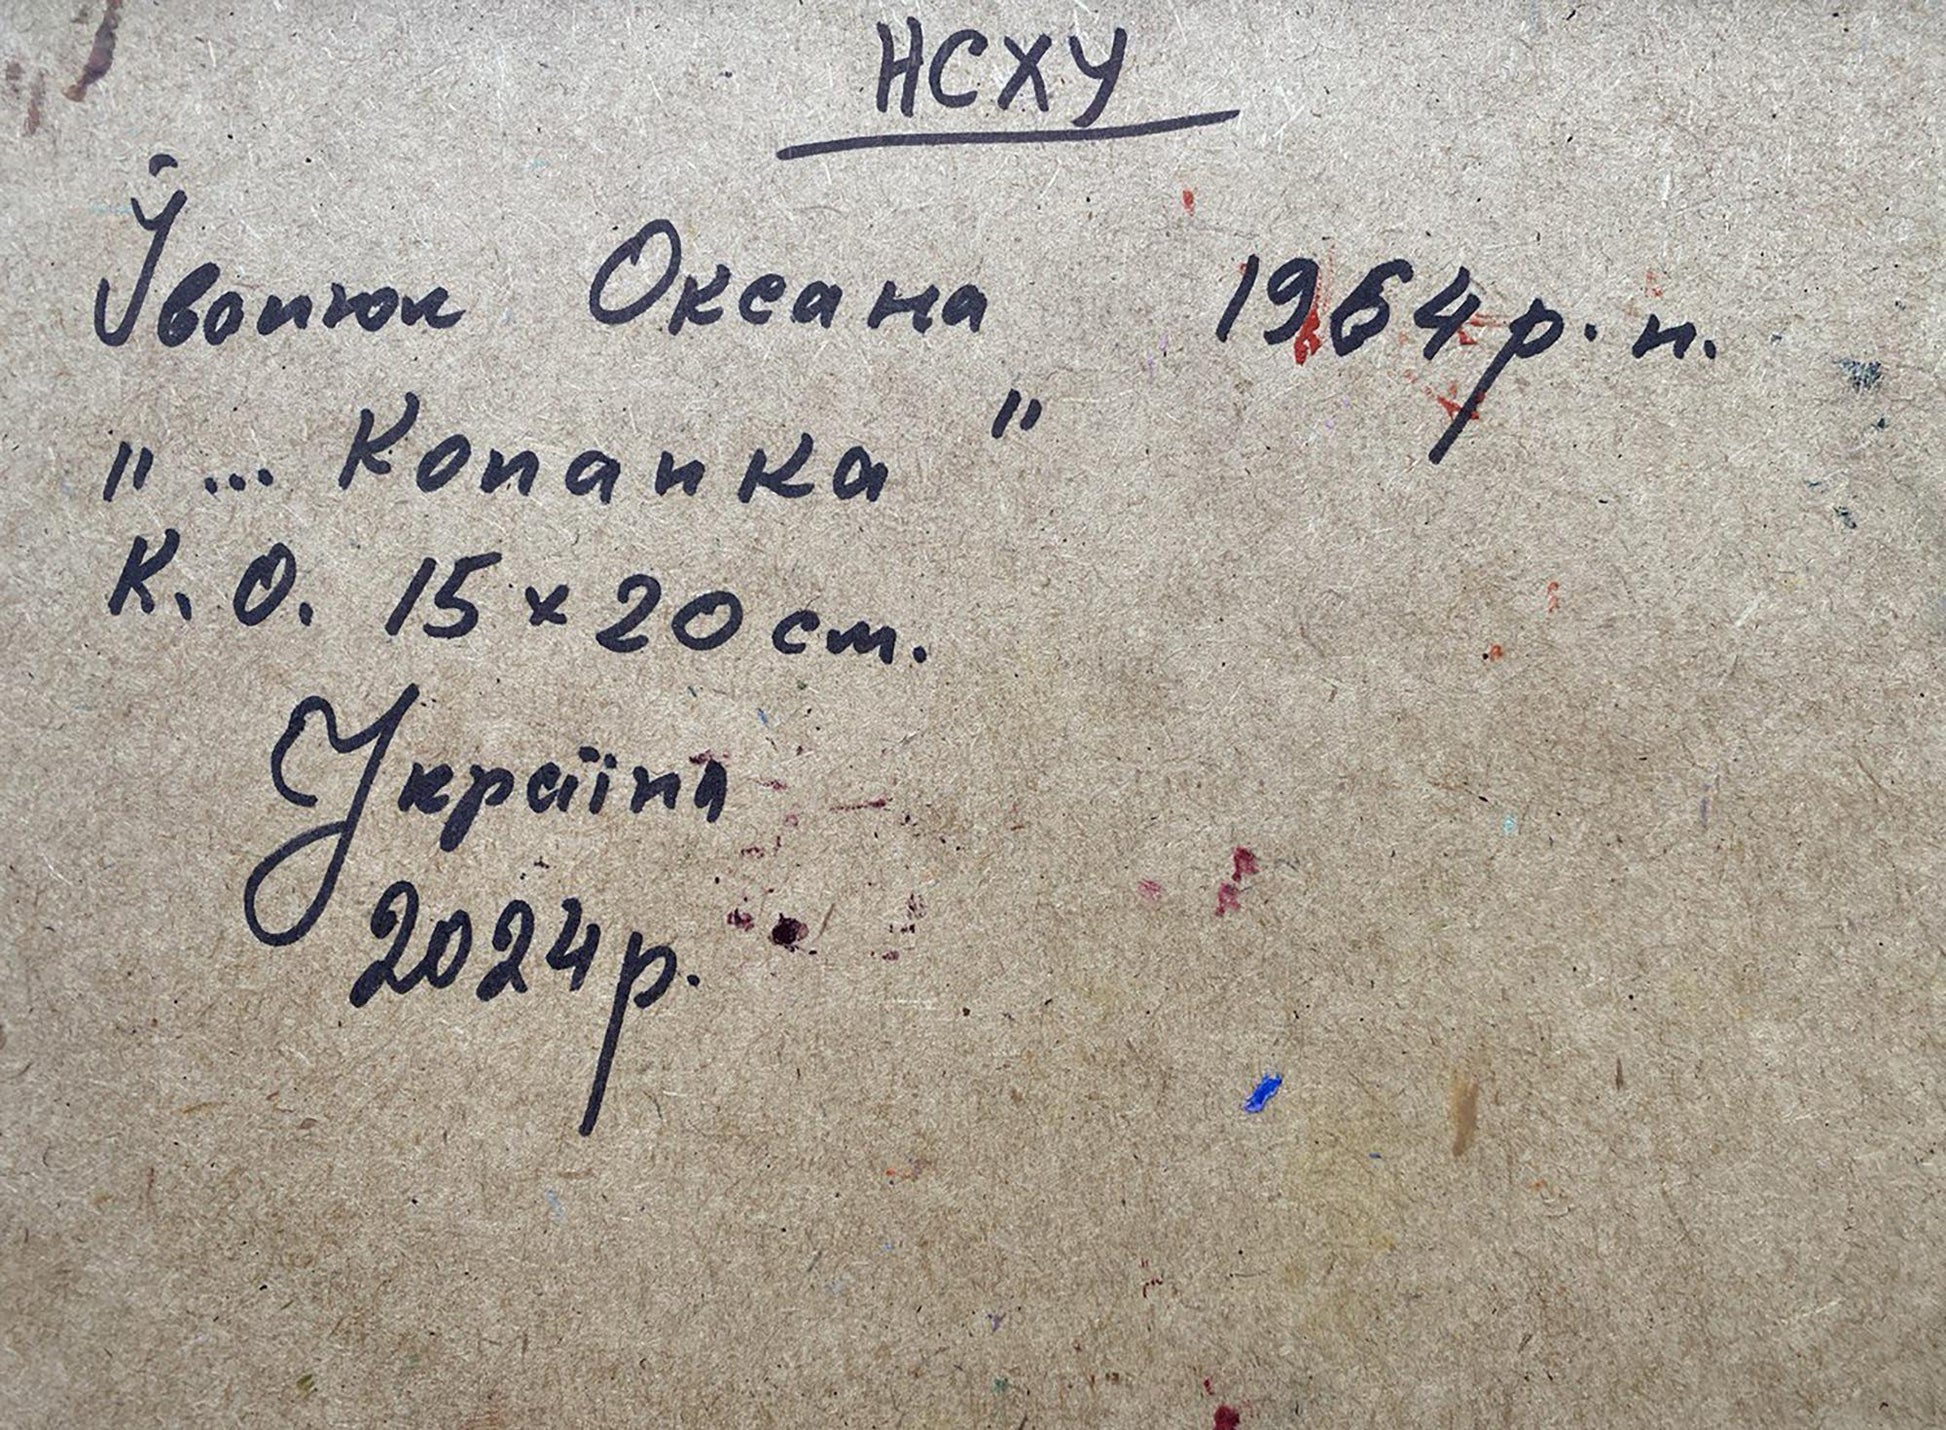 НСХУ
Івонюк Оксана 1964 р. н.
"... Копанка"
К. О. 15 x 20 см.
Україна
2024 р.